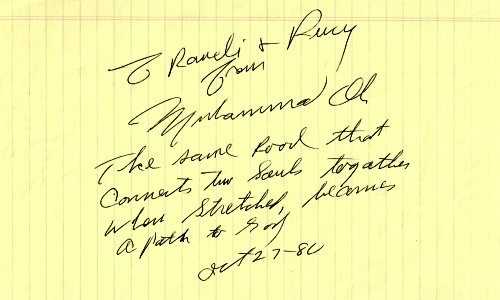 To Randi + Rucy
from
Muhammad Ali
The same rood that
Connects two Souls togather
when stretched, becomes
a path to God
Oct 27-86